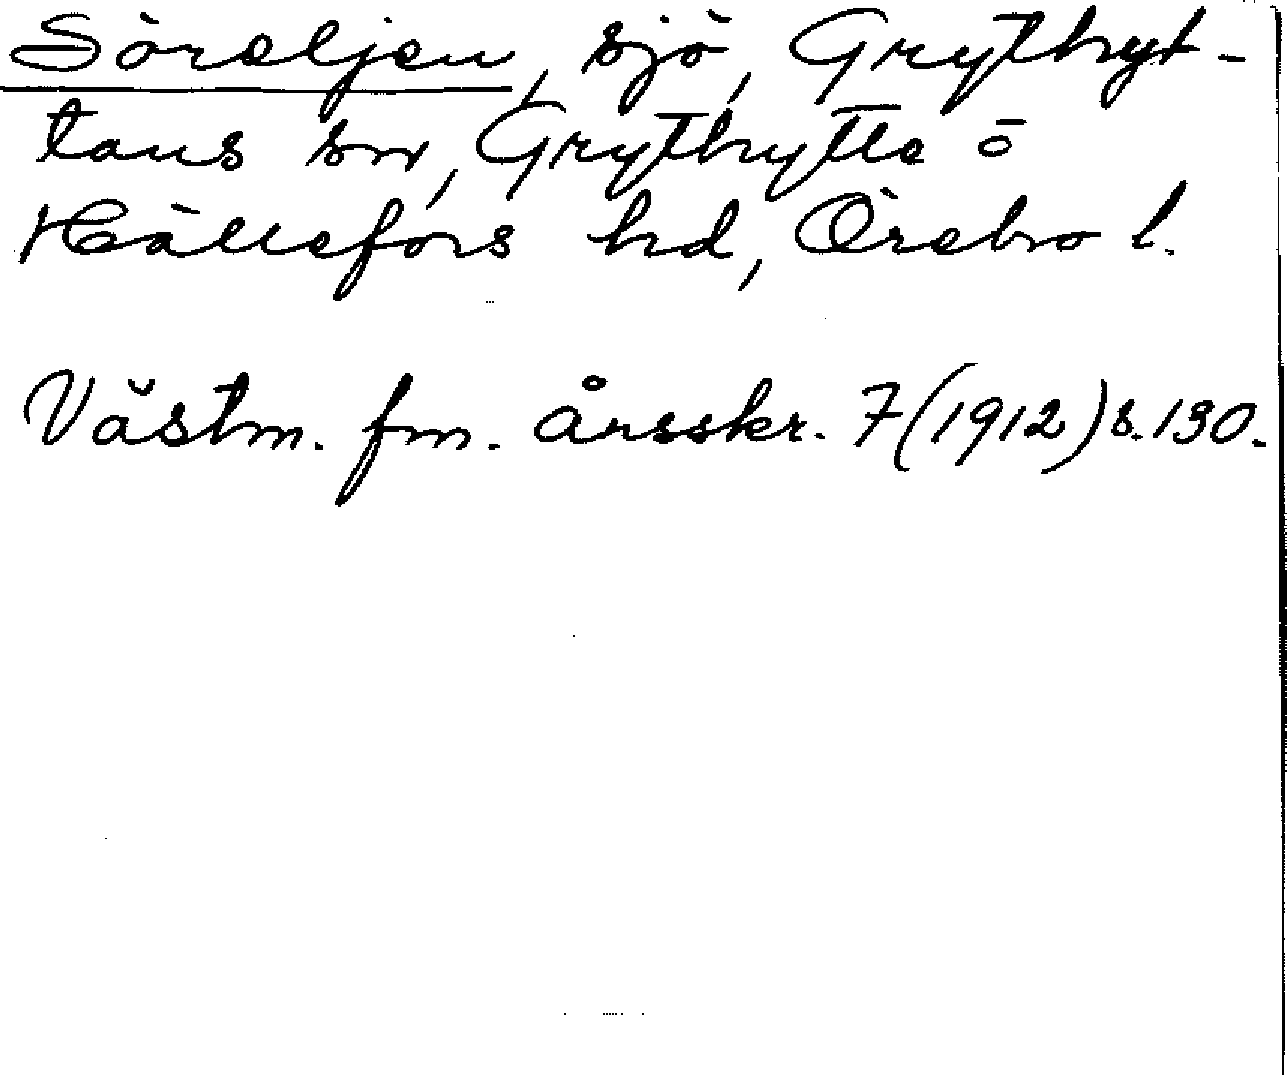 Söräljen, sjö, Grythyt-
tans sn, Grythytte o
Hällefors hd, Örebro l.
Västm. fm. årsskr. 7(1912) s. 130.